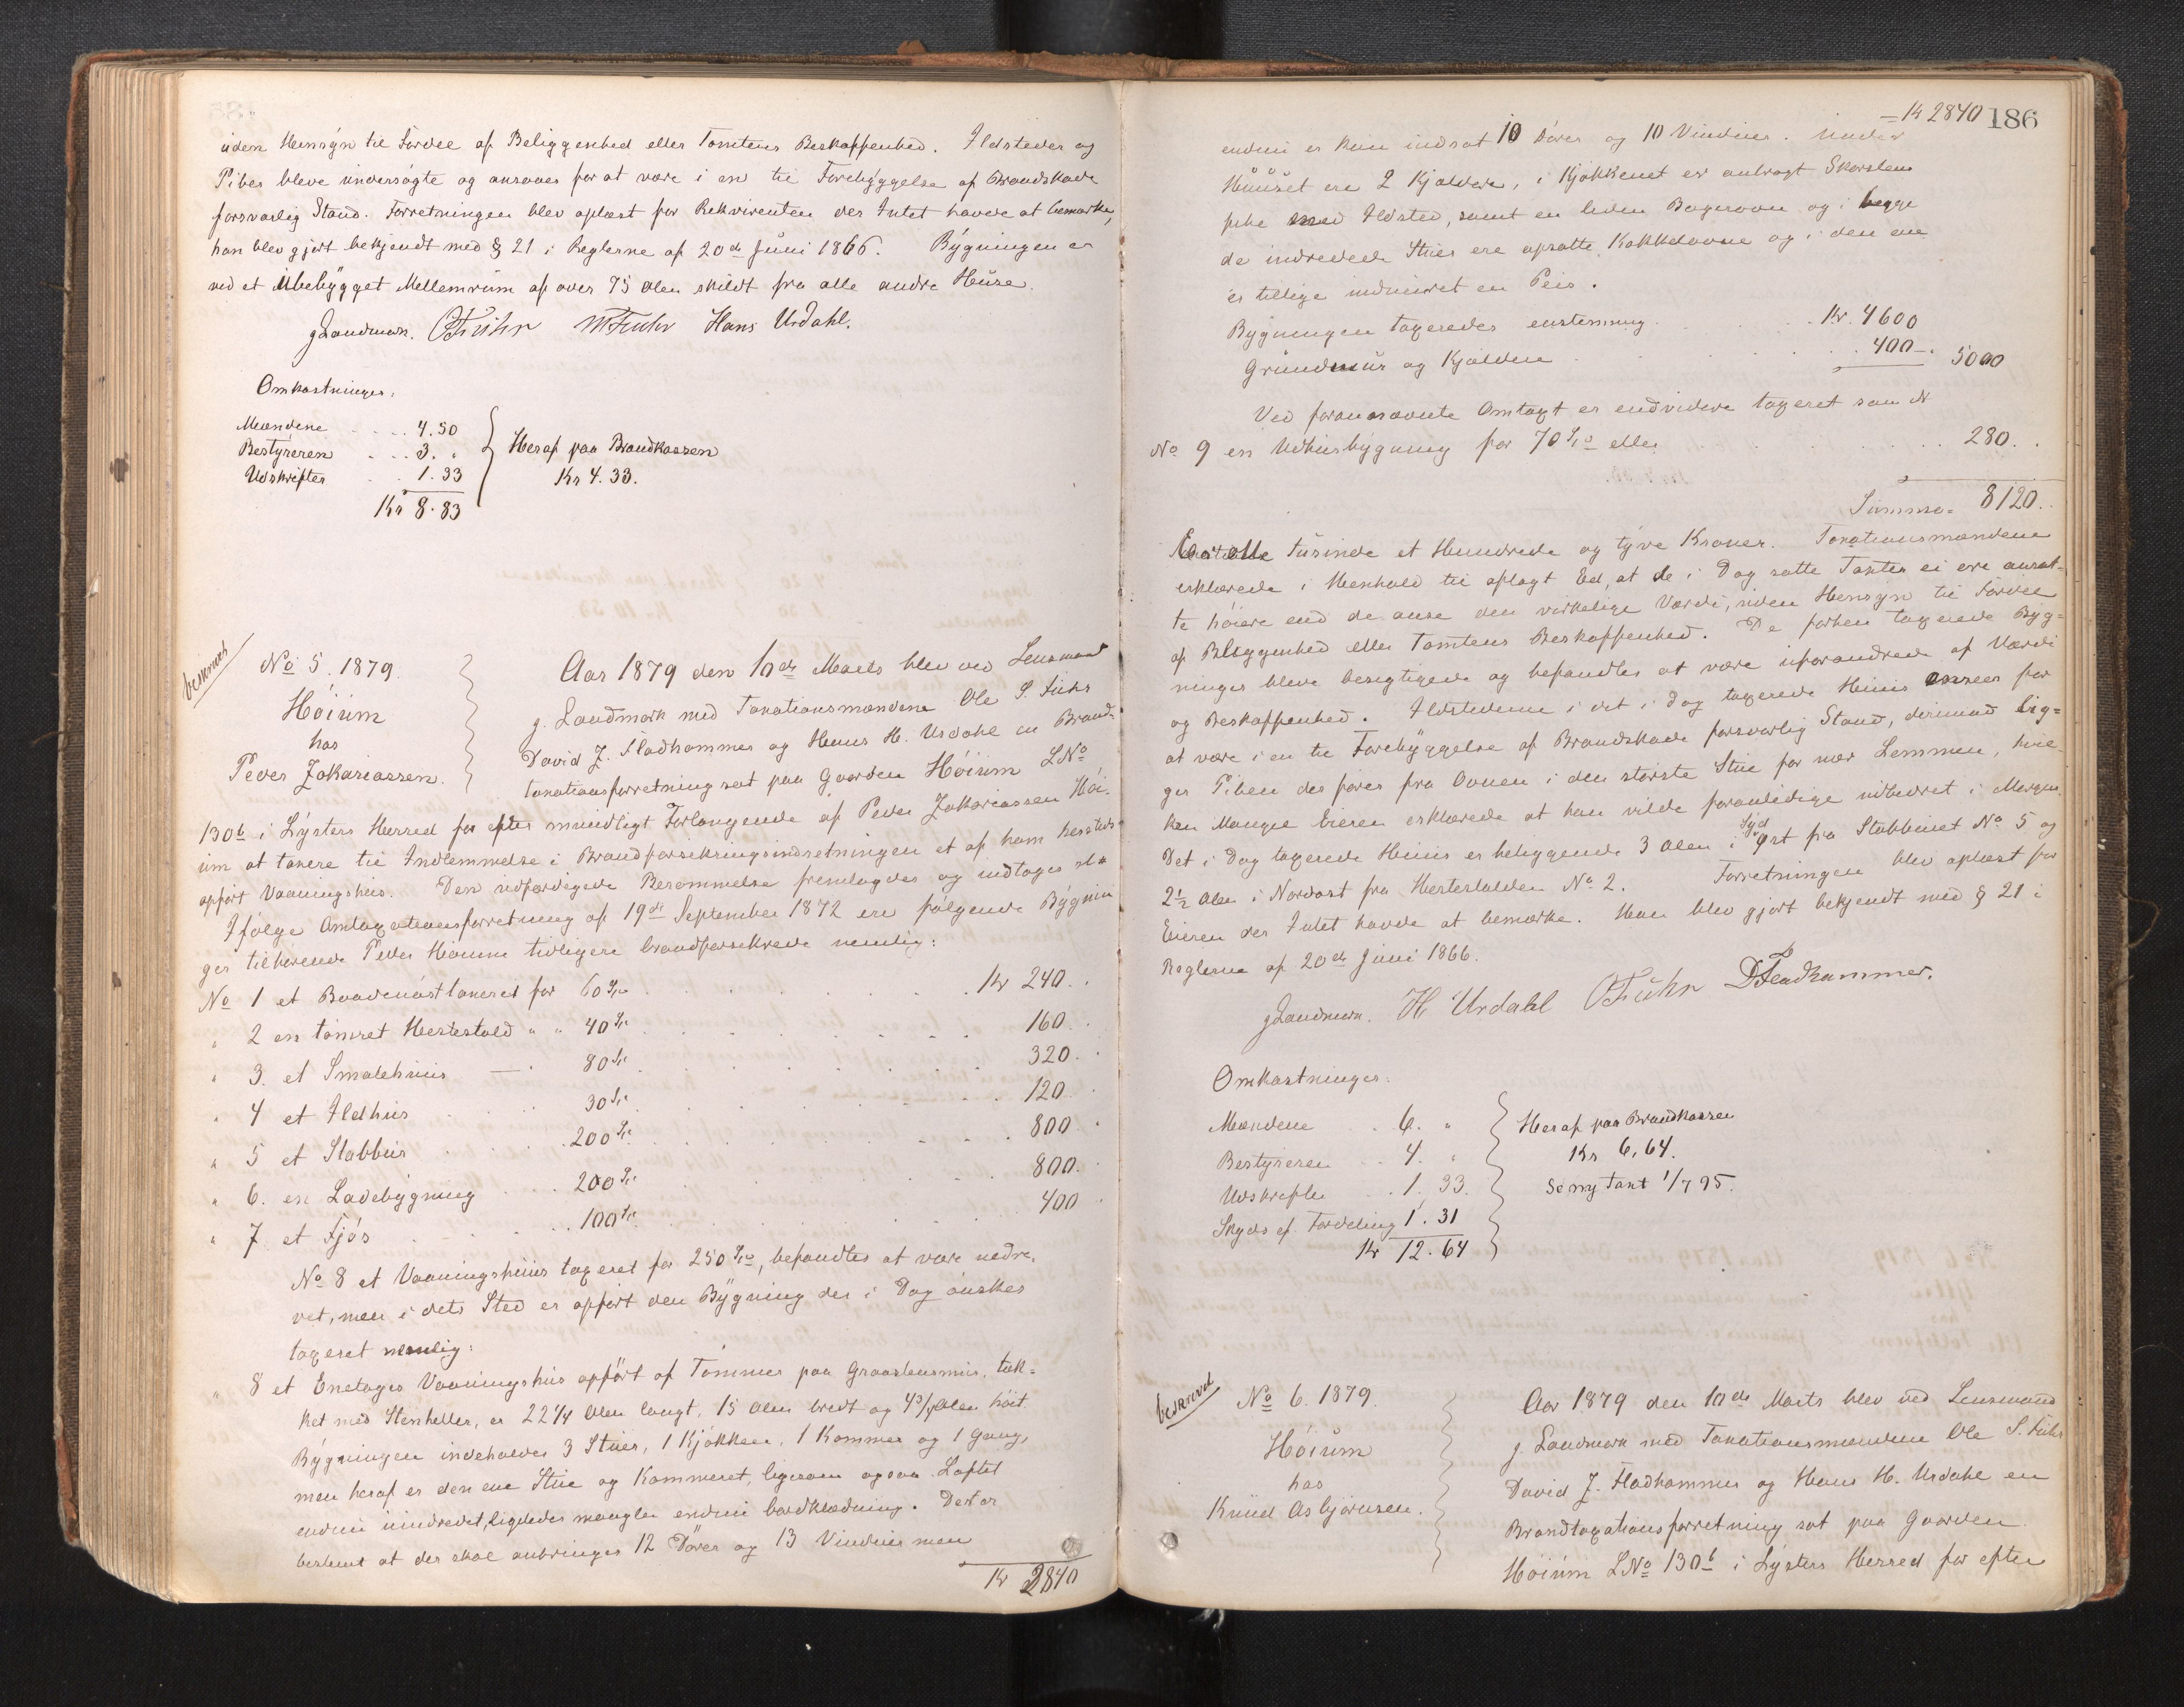 uden Hensyn til Fordel af Beliggenhed eller Tomtens Beskaffenhed. Ildsteder og
Piber bleve undersøgte og ansaaes for at være i en til Forebyggelse af Brandskade
forsvarlig Stand. Forretningen blev oplæst for Rekvirenten der Intet havde at bemærke,
han blev gjort bekjendt med § 21 i Reglerne af 20de Juni 1866. Bygningen er
ved et Ubebygget Mellemrum af over 75 Alen skildt fra alle andre Huse.
g Landmark. OFuhr MFuhr Hans Urdahl.
Omkostninger:
Mændene . . . . 4.50
Bestyreren . . . 3. "
Udskrifter . . 1.33
Kr 8.83
Heraf paa Brandkassen
Kr 4.33.
beskrevet
No 5. 1879.
Høium
hos
Peder Zakariassen.
Aar 1879 den 10de Marts blev ved Lensmand
g. Landmark med Taxationsmændene Ole S. Fuhr
David J. Fladhammer og Hans H. Urdahl en Brand-
taxationsforretning sat paa Gaarden Høium LNo
130b i Lysters Herred for efter mundtligt Forlangende af Peder Zakariassen Høi-
um at taxere til Indlemmelse i Brandforsikringsindretningen et af ham hersteds
opført Vaaningshus. Den udfærdigede Berammelse fremlagdes og indtages sl.
Ifølge Omtaxationsforretning af 19de September 1872 ere følgende Bygnin
ger tilhørende Peder Høium tidligere brandforsikrede nemlig:
No 1 et Baadenøst taxeret for 60 Spd . . . . Kr 240. .
" 2 en tømret Hestestald " " 40 Spd . . . . 160. .
" 3. et Smalehuus — " 80 Spd . . . . 320. .
" 4 et Ildhus . . . 30 Spd . . . . 120. .
" 5 et Stabbur . . . 200 Spd . . . . 800 .
" 6. en Ladebygning . . . 200 Spd . . . . 800. .
" 7 et Fjøs . . . 100 Spd . . . . 400 .
No 8 et Vaaningshuus taxeret for 250 Spd, befandtes at være nedre-
vet, men i dets Sted er opført den Bygning der i Dag ønskes
taxeret nemlig:
" 8 et Enetages Vaaningshus opført af Tømmer paa Graastensmur, tæk-
ket med Stenheller, er 22 1/4 Alen langt, 15 Alen bredt og 4 3/4 Alen høit.
Bygningen indeholder 3 Stuer, 1 Kjøkken, 1 Kammer og 1 Gang,
men heraf er den ene Stue og Kammeret, ligesom ogsaa Loftet
endnu uindredet, ligeledes mangler endnu bordklædning. Det er
bestemt at der skal anbringes 12 Døre og 13 Vinduer men
Kr 2840
= Kr 2840
186
endnu er kun indsat 10 Døre og 10 Vinduer. Under
Huuset ere 2 Kjældere, i Kjøkkenet er anbragt Skorstens
pibe med Ildsted, samt en liden Bagerovn og i begge
de indredede Stuer ere opsatte Kakkelovne og i den ene
er tillige indmuret en Peis.
Bygningen taxeredes enstemmig . . . . Kr. 4600
Grundmur og Kjældere . . . . 400 —. 5000
Ved forannævnte Omtaxt er endvidere taxeret som N
No 9 en Udhusbygning for 70 Spd eller . . . . 280. .
Summa = 8120. .
otte tusinde et Hundrede og tyve Kroner. Taxationsmændene
erklærede i Henhold til aflagt Ed, at de i Dag satte Taxter ei ere ansat-
te høiere end de anse den virkelige Værdi, uden Hensyn til Fordel
af Beliggenhed eller Tomtens Beskaffenhed. De forhen taxerede Byg-
ninger bleve besigtigede og befandtes at være uforandrede af Værdi
og Beskaffenhed. Ildstederne i det i Dag taxerede Huus ansees for
at være i en til Forebyggelse af Brandskade forsvarlig Stand, derimod lig-
ger Piben der føres fra Ovnen i den største Stue for nær Lemmen, hvil-
ken Mangel Eieren erklærede at han vilde foranledige udbedret i Morgen.
Det i Dag taxerede Huus er beliggende 3 Alen i Syd Øst fra Stabburet No 5 og
2 1/2 Alen i Nordost fra Hestestalden No 2. Forretningen blev oplæst for
Eieren der Intet havde at bemærke. Han blev gjort bekjendt med § 21 i
Reglerne af 20de Juni 1866.
g Landmark. H Urdahl OFuhr DFladhammer.
Omkostninger:
Mændene . . 6. "
Bestyreren . . 4. "
Udskrifter . . 1. 33.
Skyds ef. Fordeling 1. 31
Kr 12. 64
Heraf paa Brandkassen
Kr 6,64.
Se ny Taxt 1/7 95.
beskrevet
No 6. 1879.
Høium
hos
Knud Asbjørnsen.
Aar 1879 den 10de Marts blev ved Lensmand
g. Landmark med Taxationsmændene Ole S. Fuhr
David J. Fladhammer og Hans H. Urdahl en
Brandtaxationsforretning sat paa Gaarden
Høium LNo 130b i Lysters Herred for efter